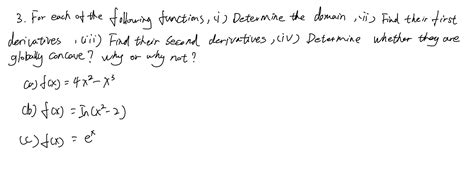 3. For each of the following functions, i) Determine the domain, ii) Find their first
derivatives, (iii) Find their second derivatives, (iv) Determine whether they are
globally concave? why or why not?
(a) f(x) = 4x² - x³
(b) f(x) = In(x²-2)
(c) f(x) = eˣ